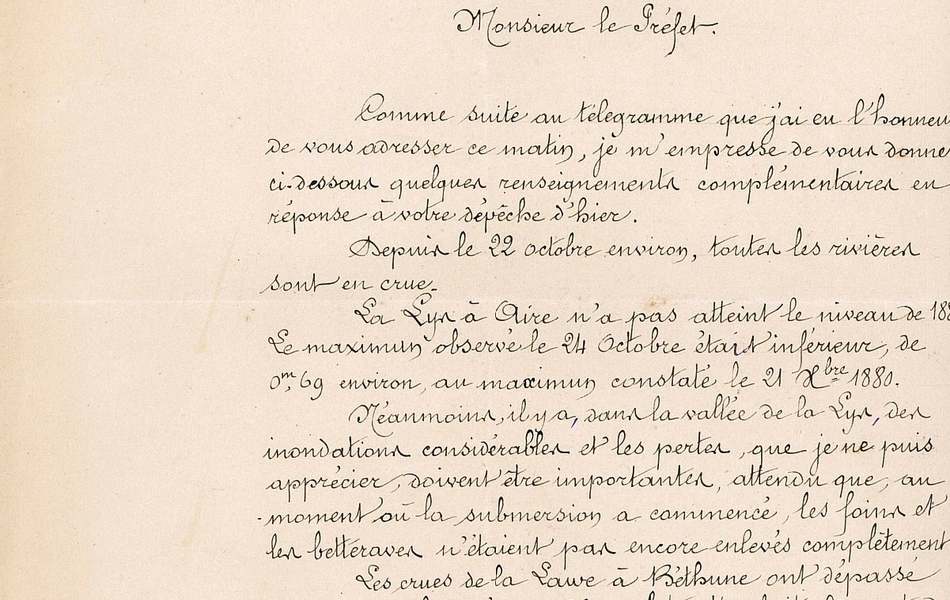 Monsieur le Préfet.
Comme suite au télégramme que j'ai eu l'honneu
de vous adresser ce matin, je m'empresse de vous donne
ci-dessous quelques renseignements complémentaires en
réponse à votre dépêche d'hier.
Depuis le 22 octobre environ, toutes les rivières
sont en crue.
La Lys à Aire n'a pas atteint le niveau de 188
Le maximum observé le 24 Octobre était inférieur, de
0m,69 environ, au maximum constaté le 21 Xbre 1880.
Néanmoins, il y a, dans la vallée de la Lys, des
inondations considérables et les pertes, que je ne puis
apprécier, doivent être importantes, attendu que, au
moment où la submersion a commencé, les foins et
les betteraves n'étaient pas encore enlevés complètement
Les crues de la Lawe à Béthune ont dépassé